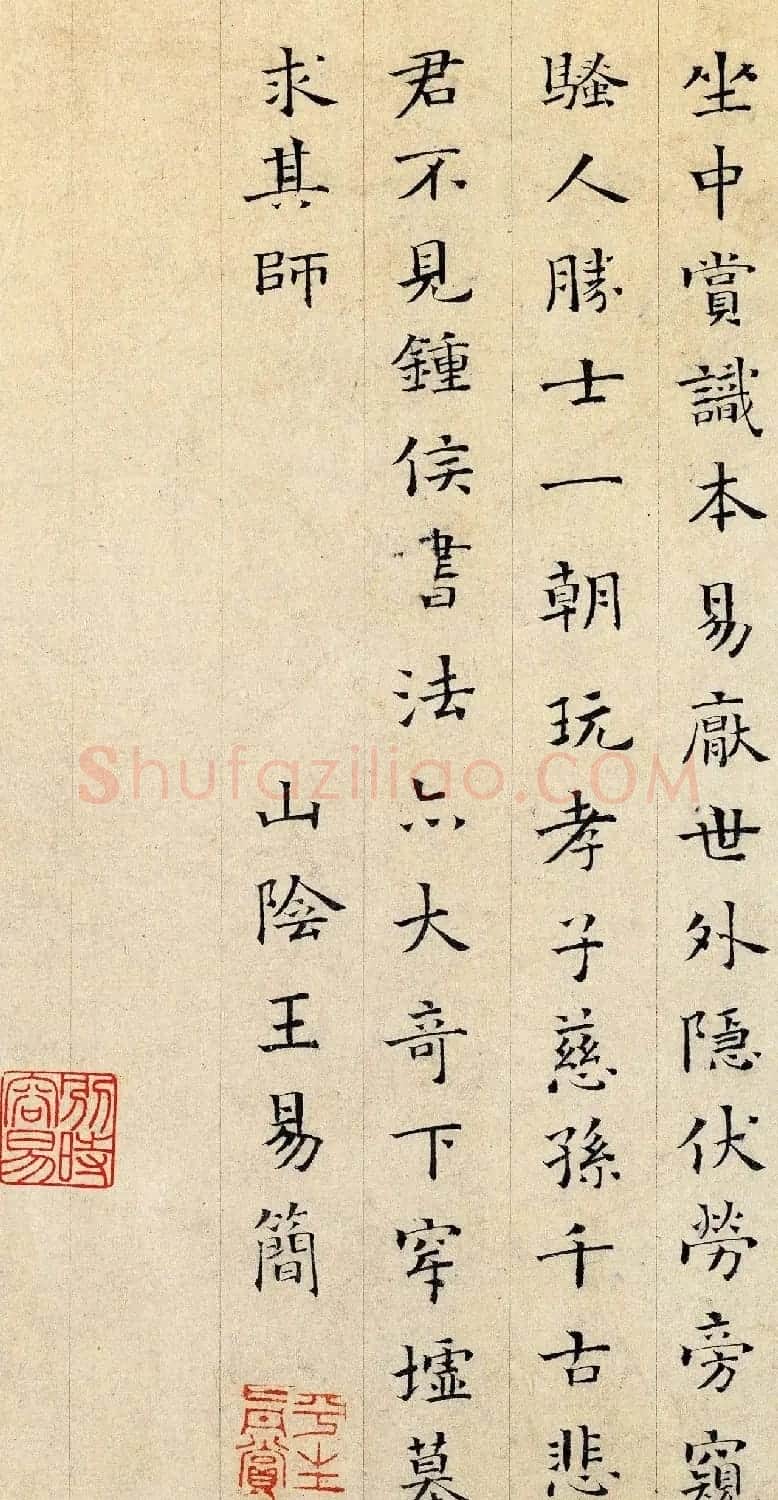 坐中賞識本易厭世外隱伏勞旁窺
騷人勝士一朝玩孝子慈孫千古悲
君不見鍾侯書法亦大奇下窂墟墓
求其師
山陰王易簡
別時容易
平生真賞
Shufaziliao.COM